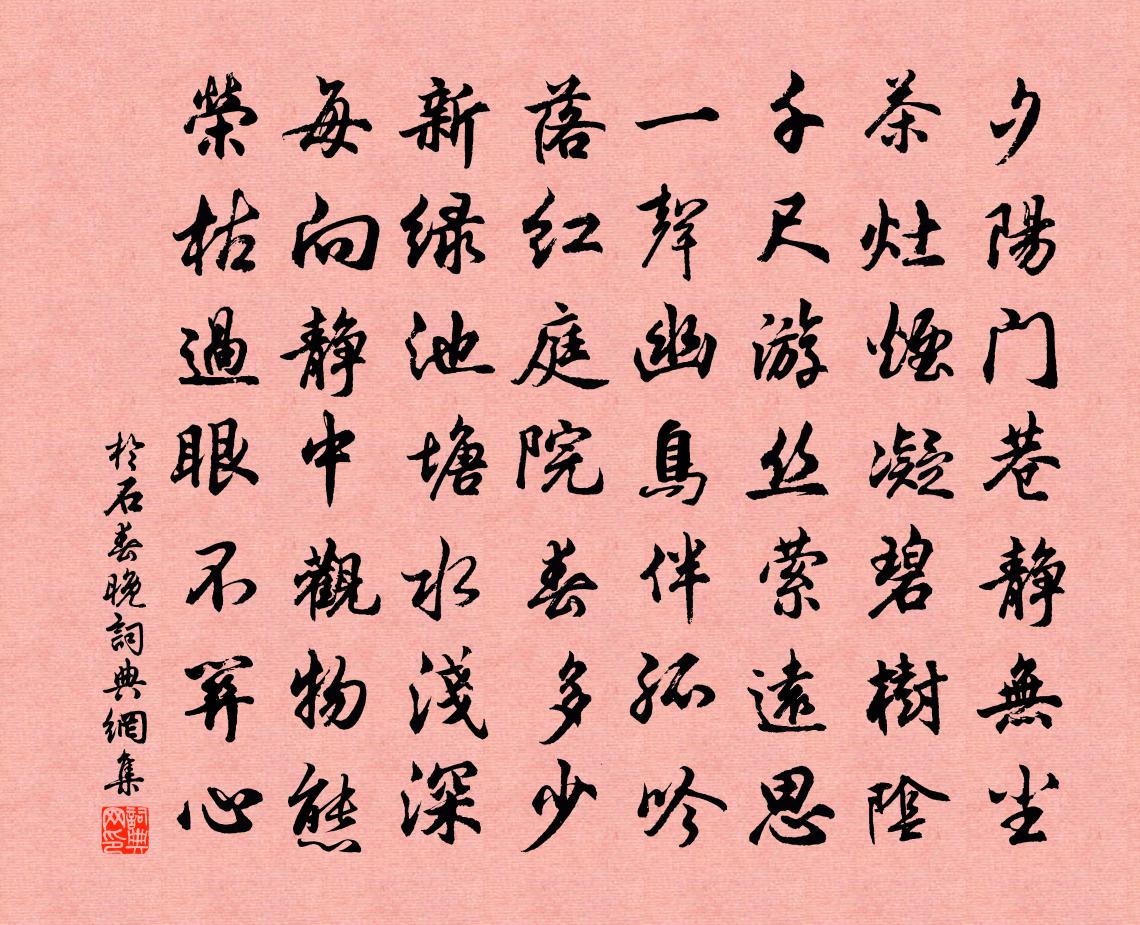 夕陽门巷静無尘
茶灶煙凝碧樹陰
千尺游丝萦遠思
一聲幽鳥伴孤吟
落红庭院春多少
新绿池塘水淺深
每向静中觀物態
榮枯過眼不關心
於石春晚詞典網集
詞典网印